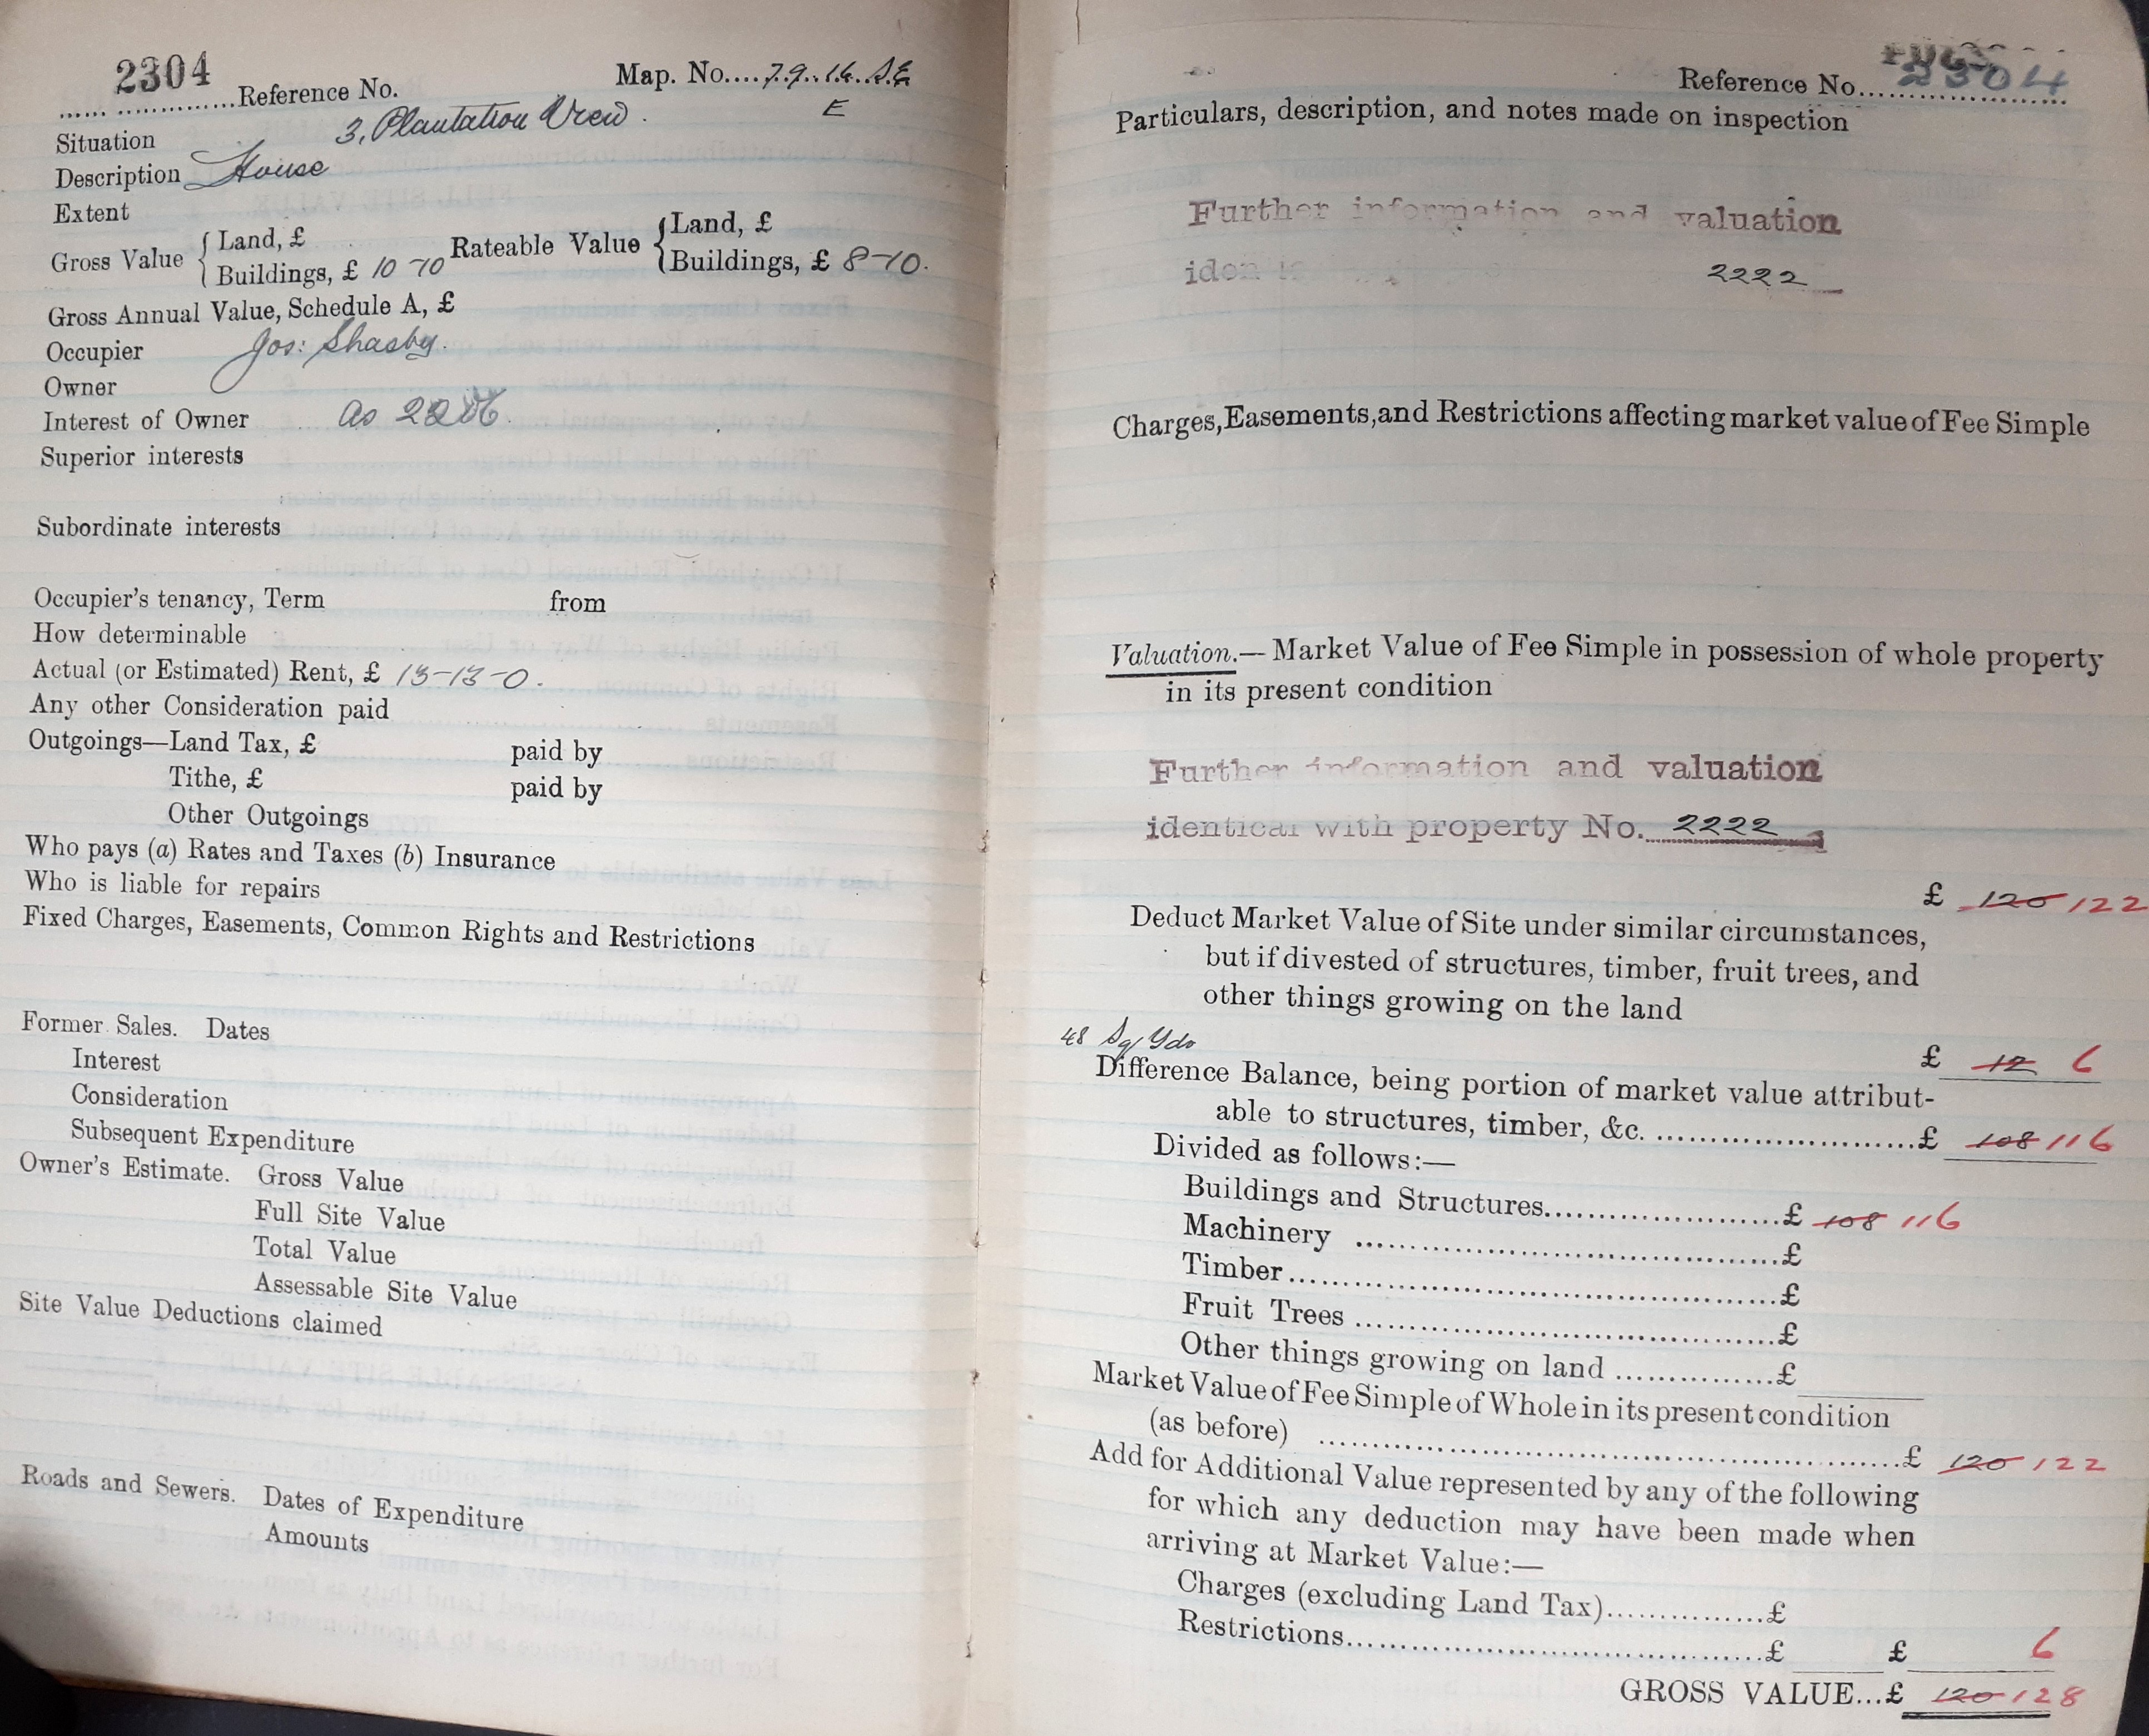 2304
Reference No.
Map. No.... 79.14. S.E.
E
Situation 3, Plantation View.
Description House
Extent
Gross Value { Land, £
Buildings, £ 10-10
Rateable Value { Land, £
Buildings, £ 8-10.
Gross Annual Value, Schedule A, £
Occupier Jos: Shasby.
Owner
Interest of Owner as
Superior interests
Subordinate interests
Occupier's tenancy, Term from
How determinable
Actual (or Estimated) Rent, £ 13-13-0.
Any other Consideration paid
Outgoings—Land Tax, £ paid by
Tithe, £ paid by
Other Outgoings
Who pays (a) Rates and Taxes (b) Insurance
Who is liable for repairs
Fixed Charges, Easements, Common Rights and Restrictions
Former Sales. Dates
Interest
Consideration
Subsequent Expenditure
Owner's Estimate. Gross Value
Full Site Value
Total Value
Assessable Site Value
Site Value Deductions claimed
Roads and Sewers. Dates of Expenditure
Amounts
Reference No. 2304
Particulars, description, and notes made on inspection
Further information and valuation
iden 2222
Charges, Easements, and Restrictions affecting market value of Fee Simple
Valuation.— Market Value of Fee Simple in possession of whole property
in its present condition
Further information and valuation
identical with property No. 2222
£ 120 122
Deduct Market Value of Site under similar circumstances,
but if divested of structures, timber, fruit trees, and
other things growing on the land
48 Sq Yds
£ 12 6
Difference Balance, being portion of market value attribut-
able to structures, timber, &c. ........£ 108 116
Divided as follows:—
Buildings and Structures........£ 108 116
Machinery ........£
Timber........£
Fruit Trees ........£
Other things growing on land ........£
Market Value of Fee Simple of Whole in its present condition
(as before) ........£ 120 122
Add for Additional Value represented by any of the following
for which any deduction may have been made when
arriving at Market Value:—
Charges (excluding Land Tax)........£
Restrictions........£ £ 6
GROSS VALUE...£ 120 128